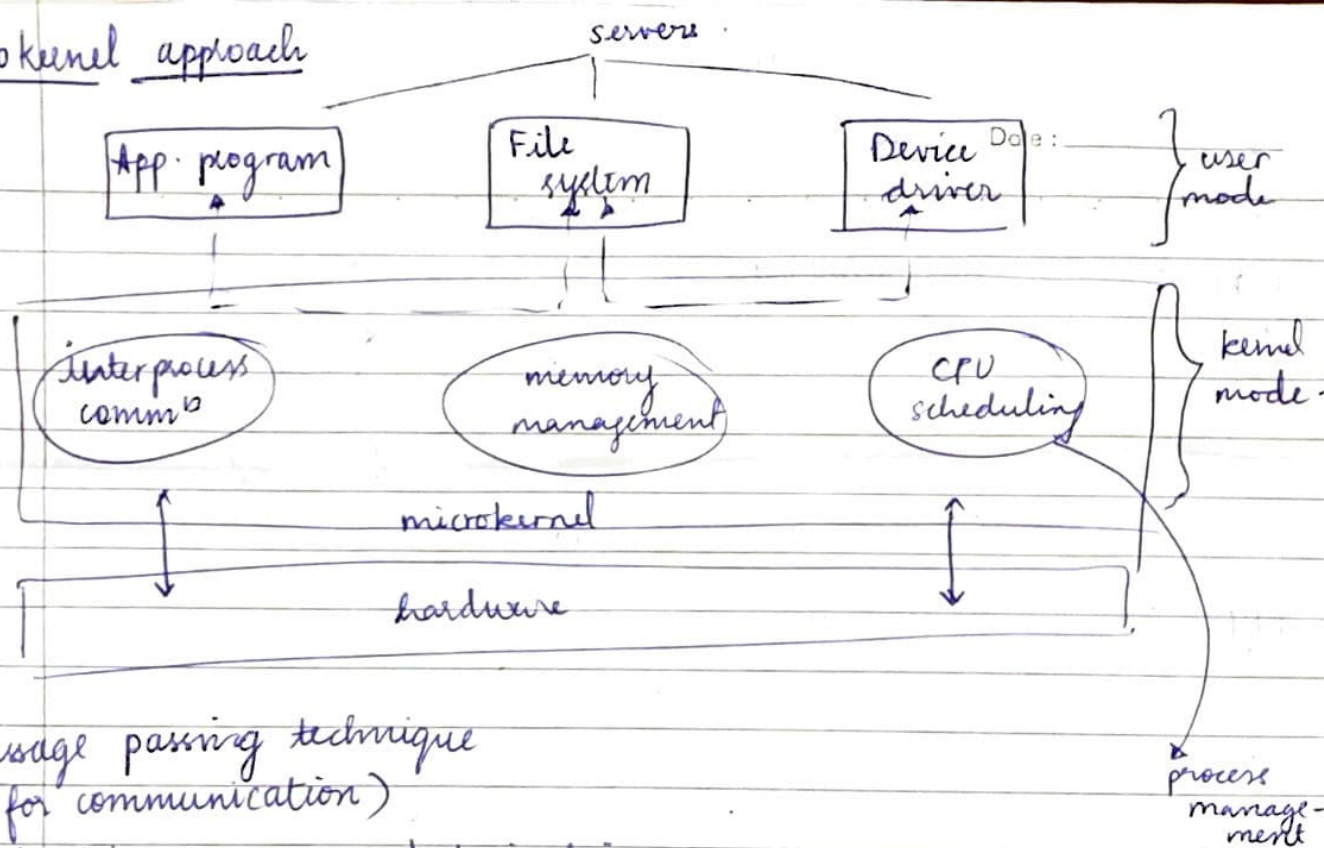 okernel approach
servers
App. program
File
system
Device
driver
Date:
user
mode
interprocess
commⁿ
memory
management
CPU
scheduling
kernel
mode
microkernel
hardware
ssage passing technique
for communication)
process
manage-
ment